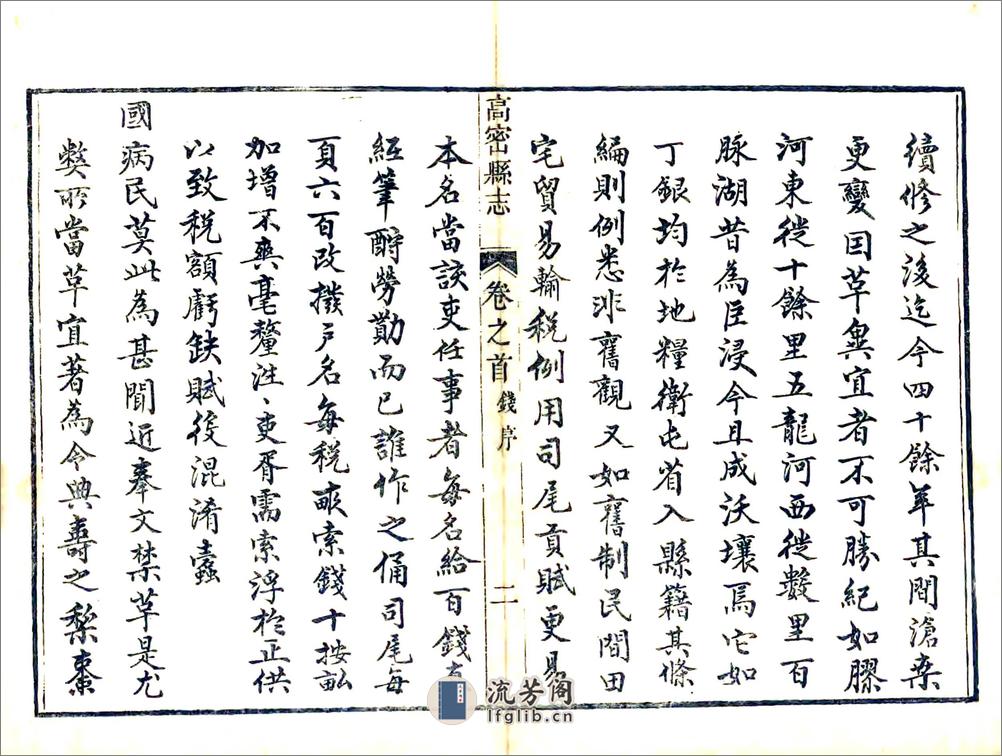 續修之後迄今四十餘年其間滄桒
更變因革異宜者不可勝紀如膠
河東徙十餘里五龍河西徙數里百
脉湖昔為巨浸今且成沃壤焉它如
丁銀均於地糧衛屯省入縣籍其條
編則例悉非舊觀又如舊制民間田
宅貿易輪稅例用司尾貢賦更易
高密縣志 卷之首 錢序 二
本名當該吏任事者每名給百錢
經筆酧勞勩而已誰作之俑司尾每
頁六百改撥戶名每稅畝索錢十按畝
加增不爽毫釐泩、吏胥需索浮於正供
以致稅額虧缺賦役混淆蠹
國病民莫此為甚聞近奉文禁革是尤
獘所當革宜著為令典壽之棃棗
流芳阁
lfglib.cn